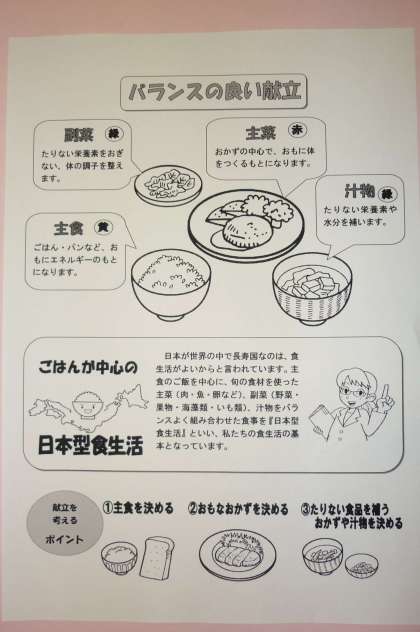 バランスの良い献立
副菜 緑
たりない栄養素をおぎ
ない、体の調子を整え
ます。
主菜 赤
おかずの中心で、おもに体
をつくるもとになります。
汁物 緑
たりない栄養素や
水分を補います。
主食 黄
ごはん・パンなど、お
もにエネルギーのもと
になります。
ごはんが中心の
日本型食生活
日本が世界の中で長寿国なのは、食
生活がよいからと言われています。主
食のご飯を中心に、旬の食材を使った
主菜（肉・魚・卵など）、副菜（野菜・
果物・海藻類・いも類）、汁物をバラ
ンスよく組み合わせた食事を『日本型
食生活』といい、私たちの食生活の基
本となっています。
献立を
考える
ポイント
①主食を決める
②おもなおかずを決める
③たりない食品を補う
おかずや汁物を決める